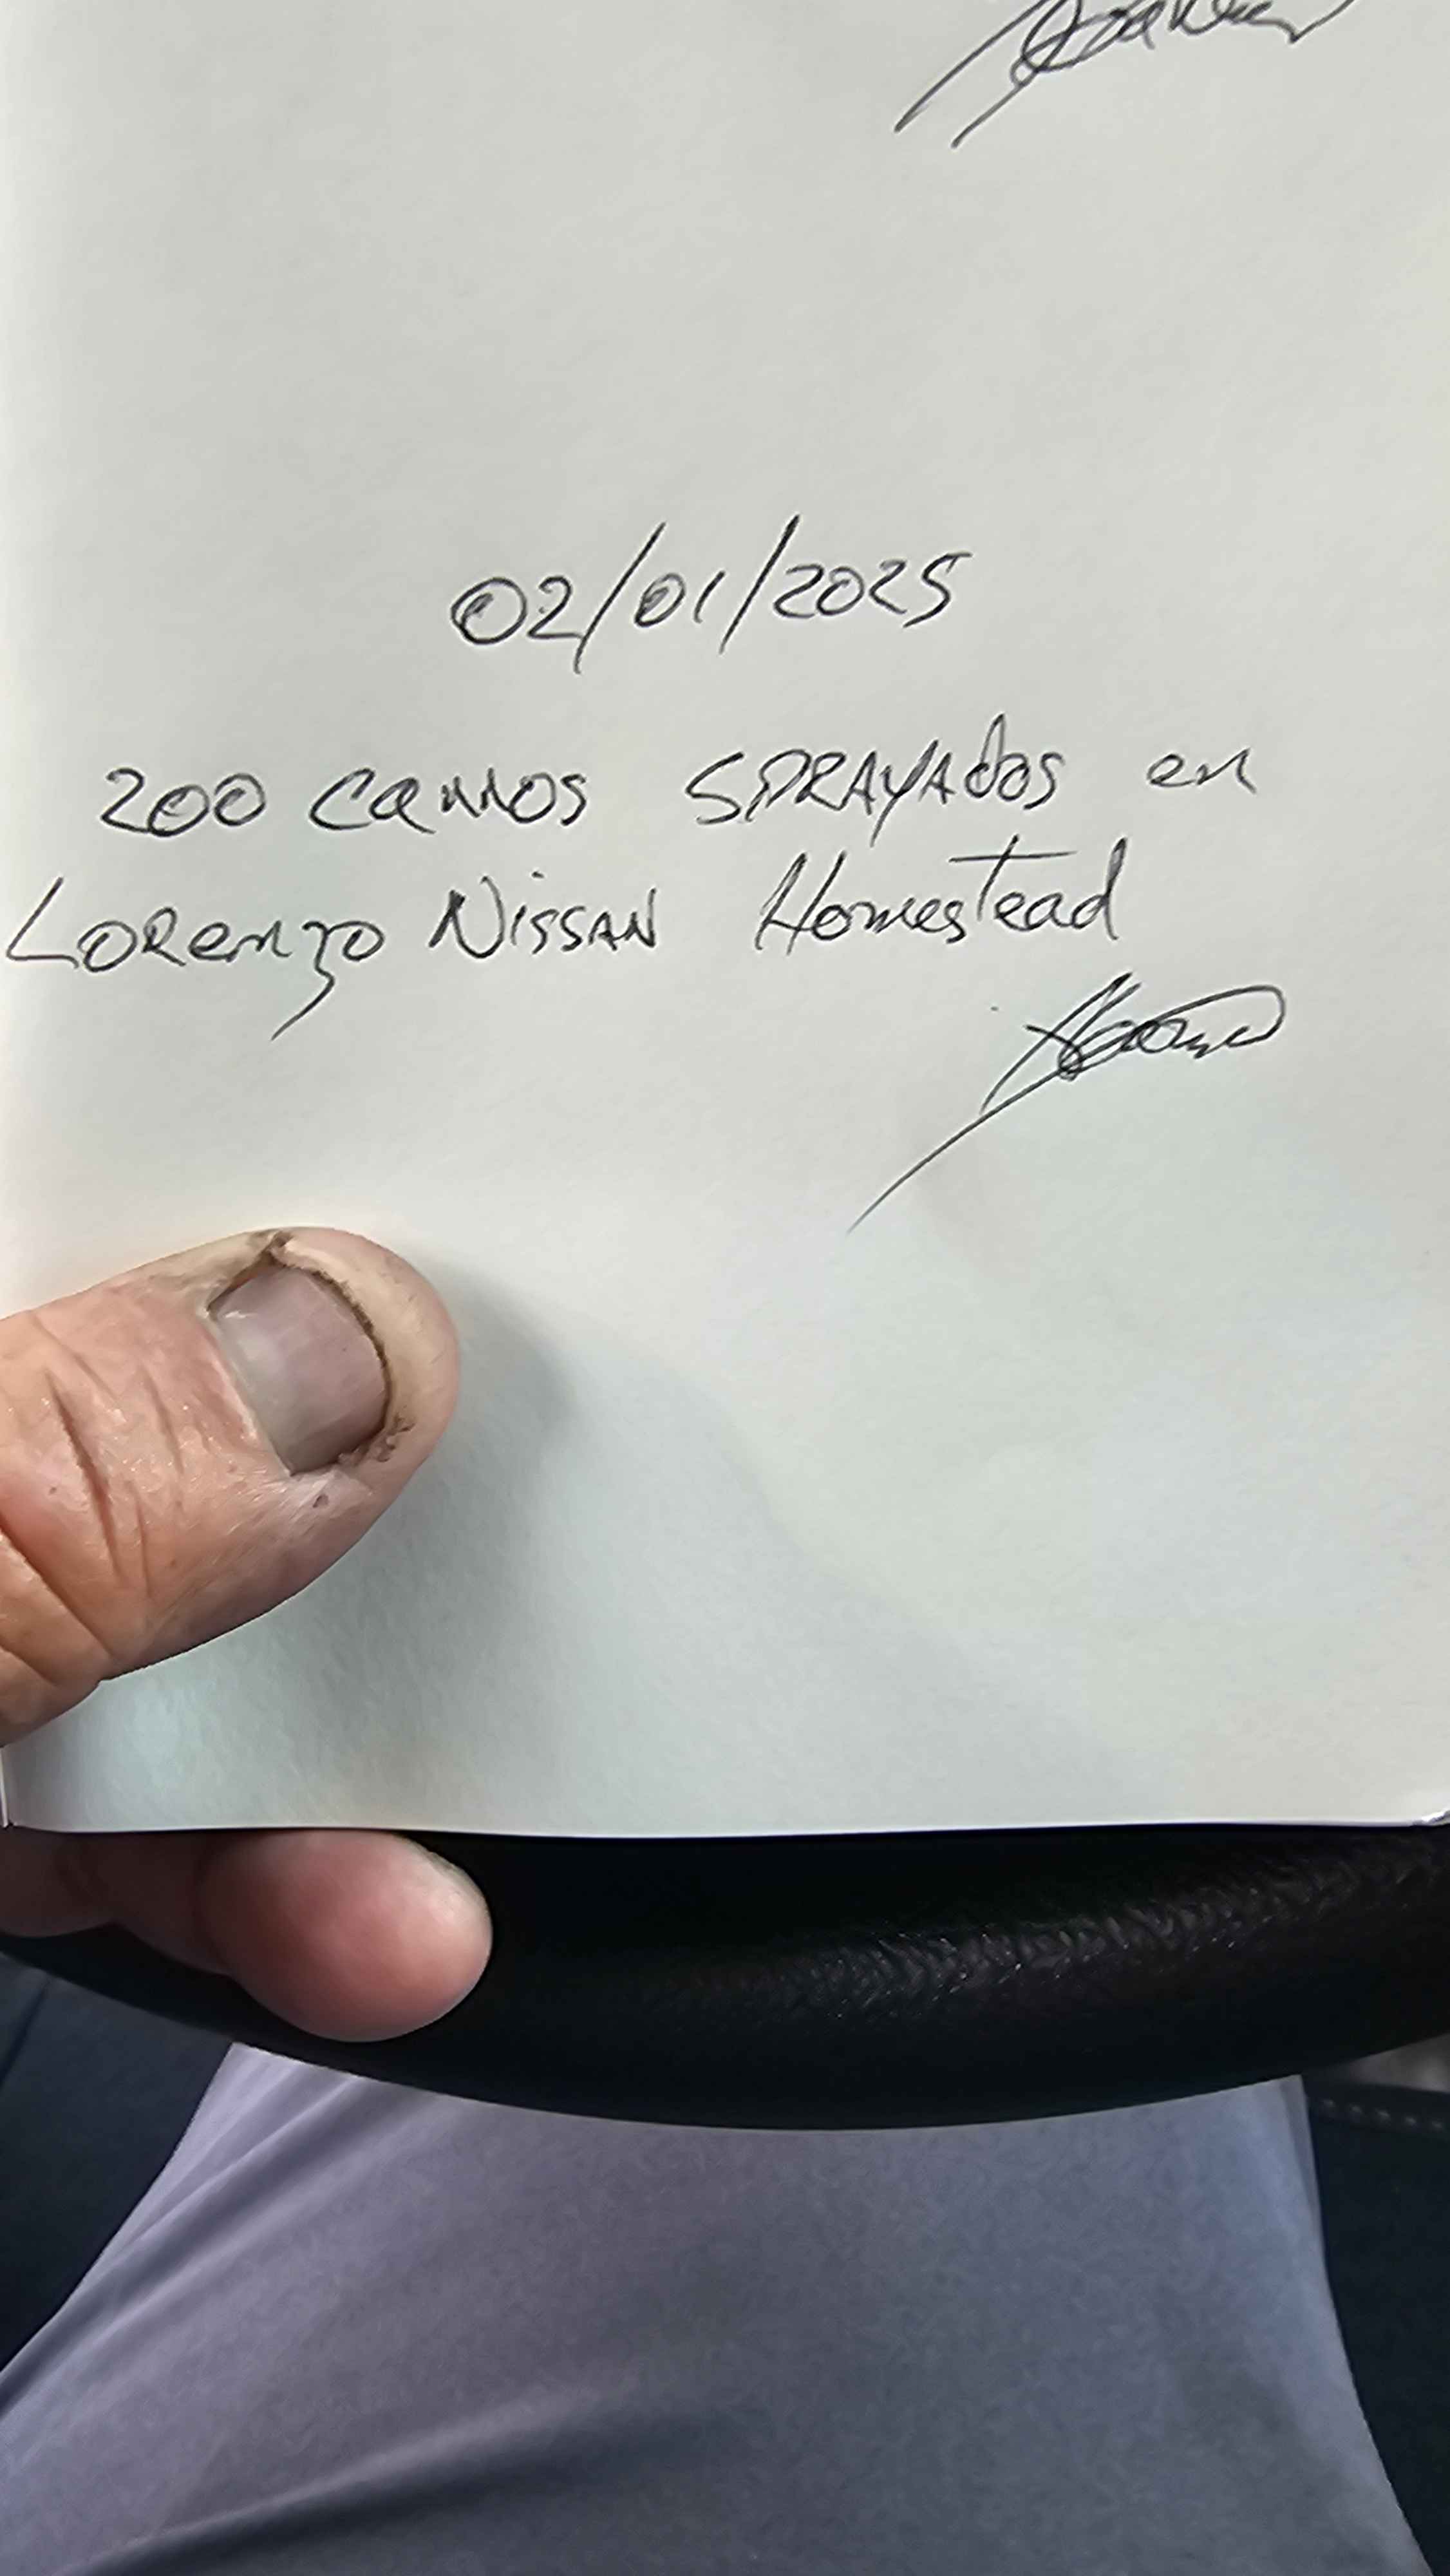 02/01/2025
200 carros SPRAYAdos en
Lorenzo Nissan Homestead